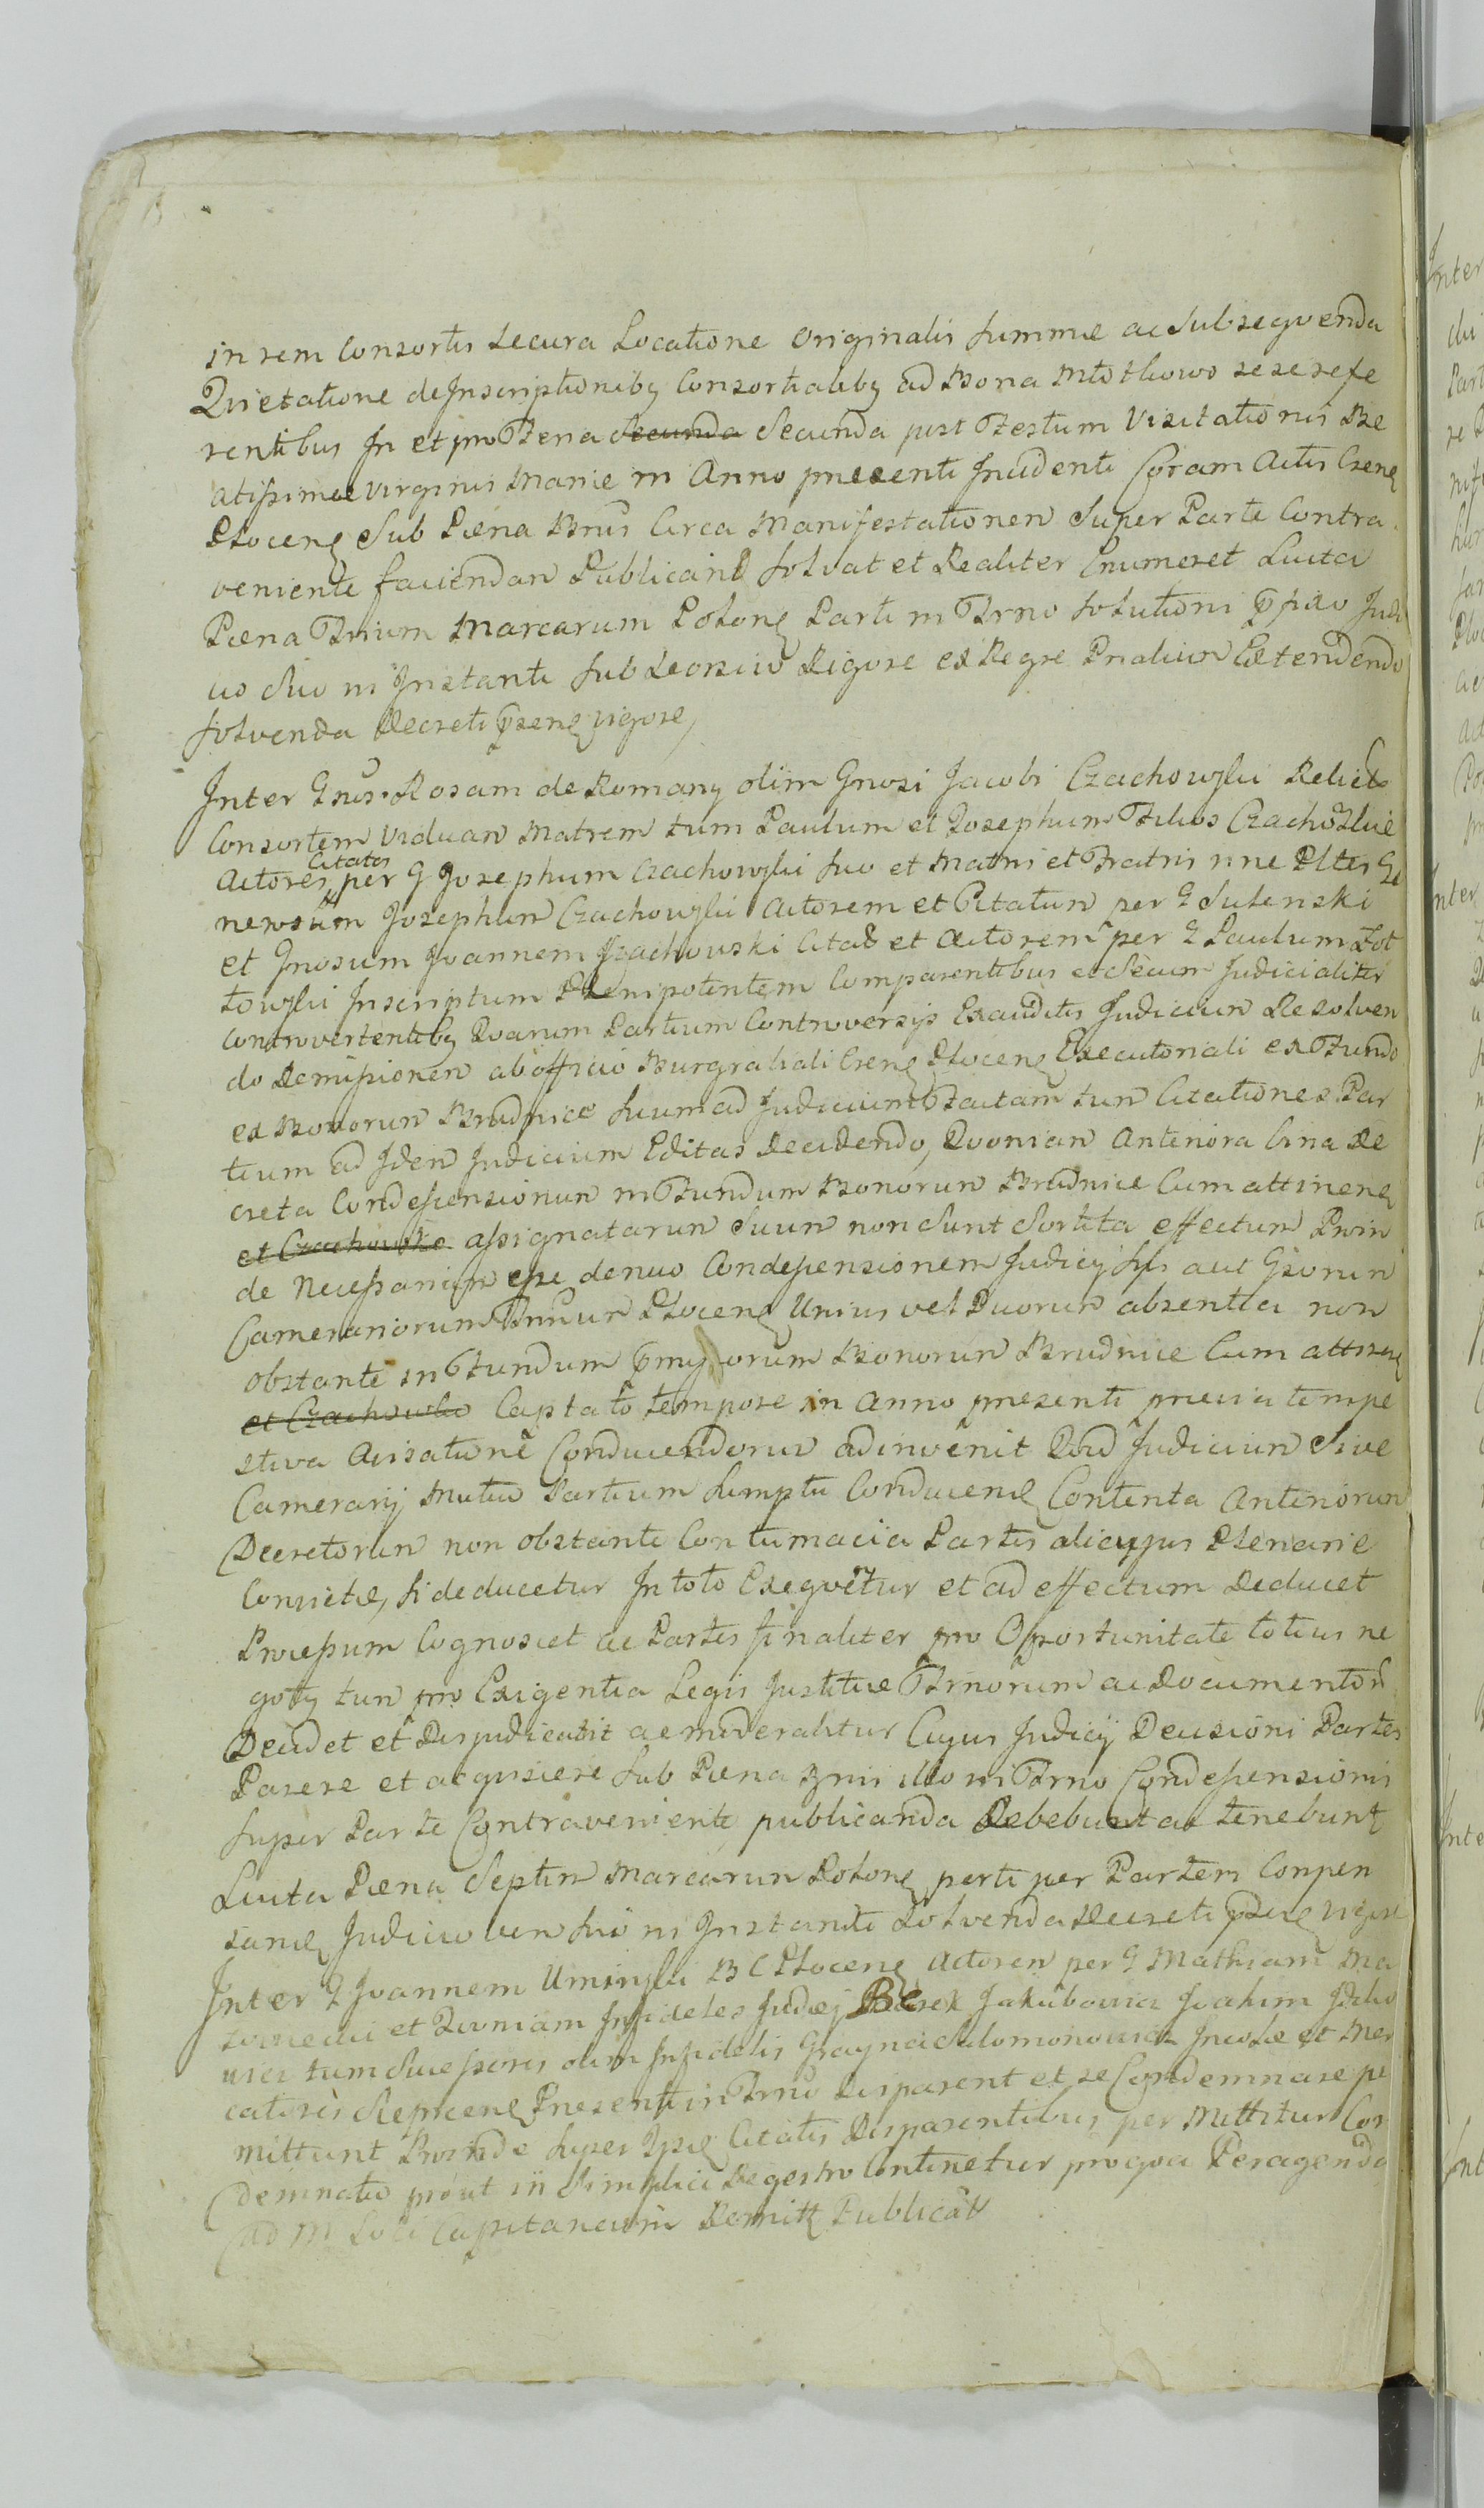 in rem Consortis Secura Locatione Originalis Summæ ac Subsequenda
Quietatione de Inscriptionibq Consortialibq ad Bona Młothowo sese refe
rentibus In et pro Feria Secunda Secunda post Festum Visitationis Be
atissimæ Virginis Mariæ in Anno præsenti Incidenti Coram Actis Csenę
Plocenę Sub Pæna Bnis Circa Manifestationem Super Parte Contra
veniente faciendam Publicand Solvat et Realiter Enumeret Luita
Pæna Trium Marcarum Polonę Parti in Trno Solutioni
uo Suo in Instanti Sub Rigore ex Regre Extendendo
Solvenda Decreti vigore
Inter Gsus Rosam de Romany olim Gnosi Jacobi Czachowski Relicta
Consortem Viduam Matrem tum Paulum et Josephum Filios Czachowskie
Actores Citatos per G Josephum Czachowski Suo et Matris et Fratris nne
Josephum Czachowski Actorem et Citatum per G Sulenski
et Gnosum Joannem Czachowski Citat et Actorem per G Paulum Zot
towski Inscriptum Plenipotentem Comparentibus et Secum Judicialiter
Controvertentibq Quarum Partium Controversijs Exauditis Judicium Resolven
do Remissionem ab officio Burgrabiali Csenę Plocenę Executoriali ex Fundo
ex Bonorum Brudnice Suum ad Judicium Factam tum Citationes Par
tium ad Idem Judicium Editas Decidendo, Quoniam Anteriora Cina De
creta Condescensionum in Fundum Bonorum Brudnice Cum attinenę
et Czachowsko assignatarum Suum non Sunt Sortita effectum Proin
de Necessarium esse denuo Condescensionem Judicij Sui aut Gsorum
Camerariorum Plocenę Unius vel Duorum absentia non
Obstante in Fundum Bonorum Brudnice Cum attinenę
et Czachowsko Captato tempore in Anno præsenti prævia tempe
stiva Avisatione Conducendorum adinvenit Quod Judicium Sive
Camerarij Mutuo Partium Sumptu Conducenę Contenta Anteriorum
Decretorum non obstante Contumacia Partis alicujus Plenarie
Convictæ, Si deducetur In toto Exequetur et ad effectum Deducet
Processum Cognoscet ac Partes finaliter pro Opportunitate totius ne
gotij tum pro Exigentia Legis Justitiæ Trnorum ac Documentor
Decidet et Disjudicabit ac moderabitur Cujus Judicij Decisioni Partes
Parere et acquiscere Sub Pæna Bnis illo in Trno Condescensionis
Super Parte Contraveniente publicanda Debebunt ac tenebunt
Luita Pæna Septem Marcarum Polonę parti per Partem Conpen
sanę Judicio vero Suo in Instanti Solvenda Decreti vigore
Inter G Joannem Uminski B C Plocenę Actorem per G Mathiam Ma
et Quoniam Infideles Judæj Berek Jakubowicz Joahim
tum Successores olim Infidelis Salomonowicz Incolæ et Mer
catores Sieprcenę Præsenti in Trno Disparent et se Condemnare per
mittunt Proinde Super Ipsis Citatis Disparentibus per Mittitur Con
demnatio prout in Simplici Regestro Continetur pro qva Peragenda
ad M Loci Capitaneum Remitt Publicatt